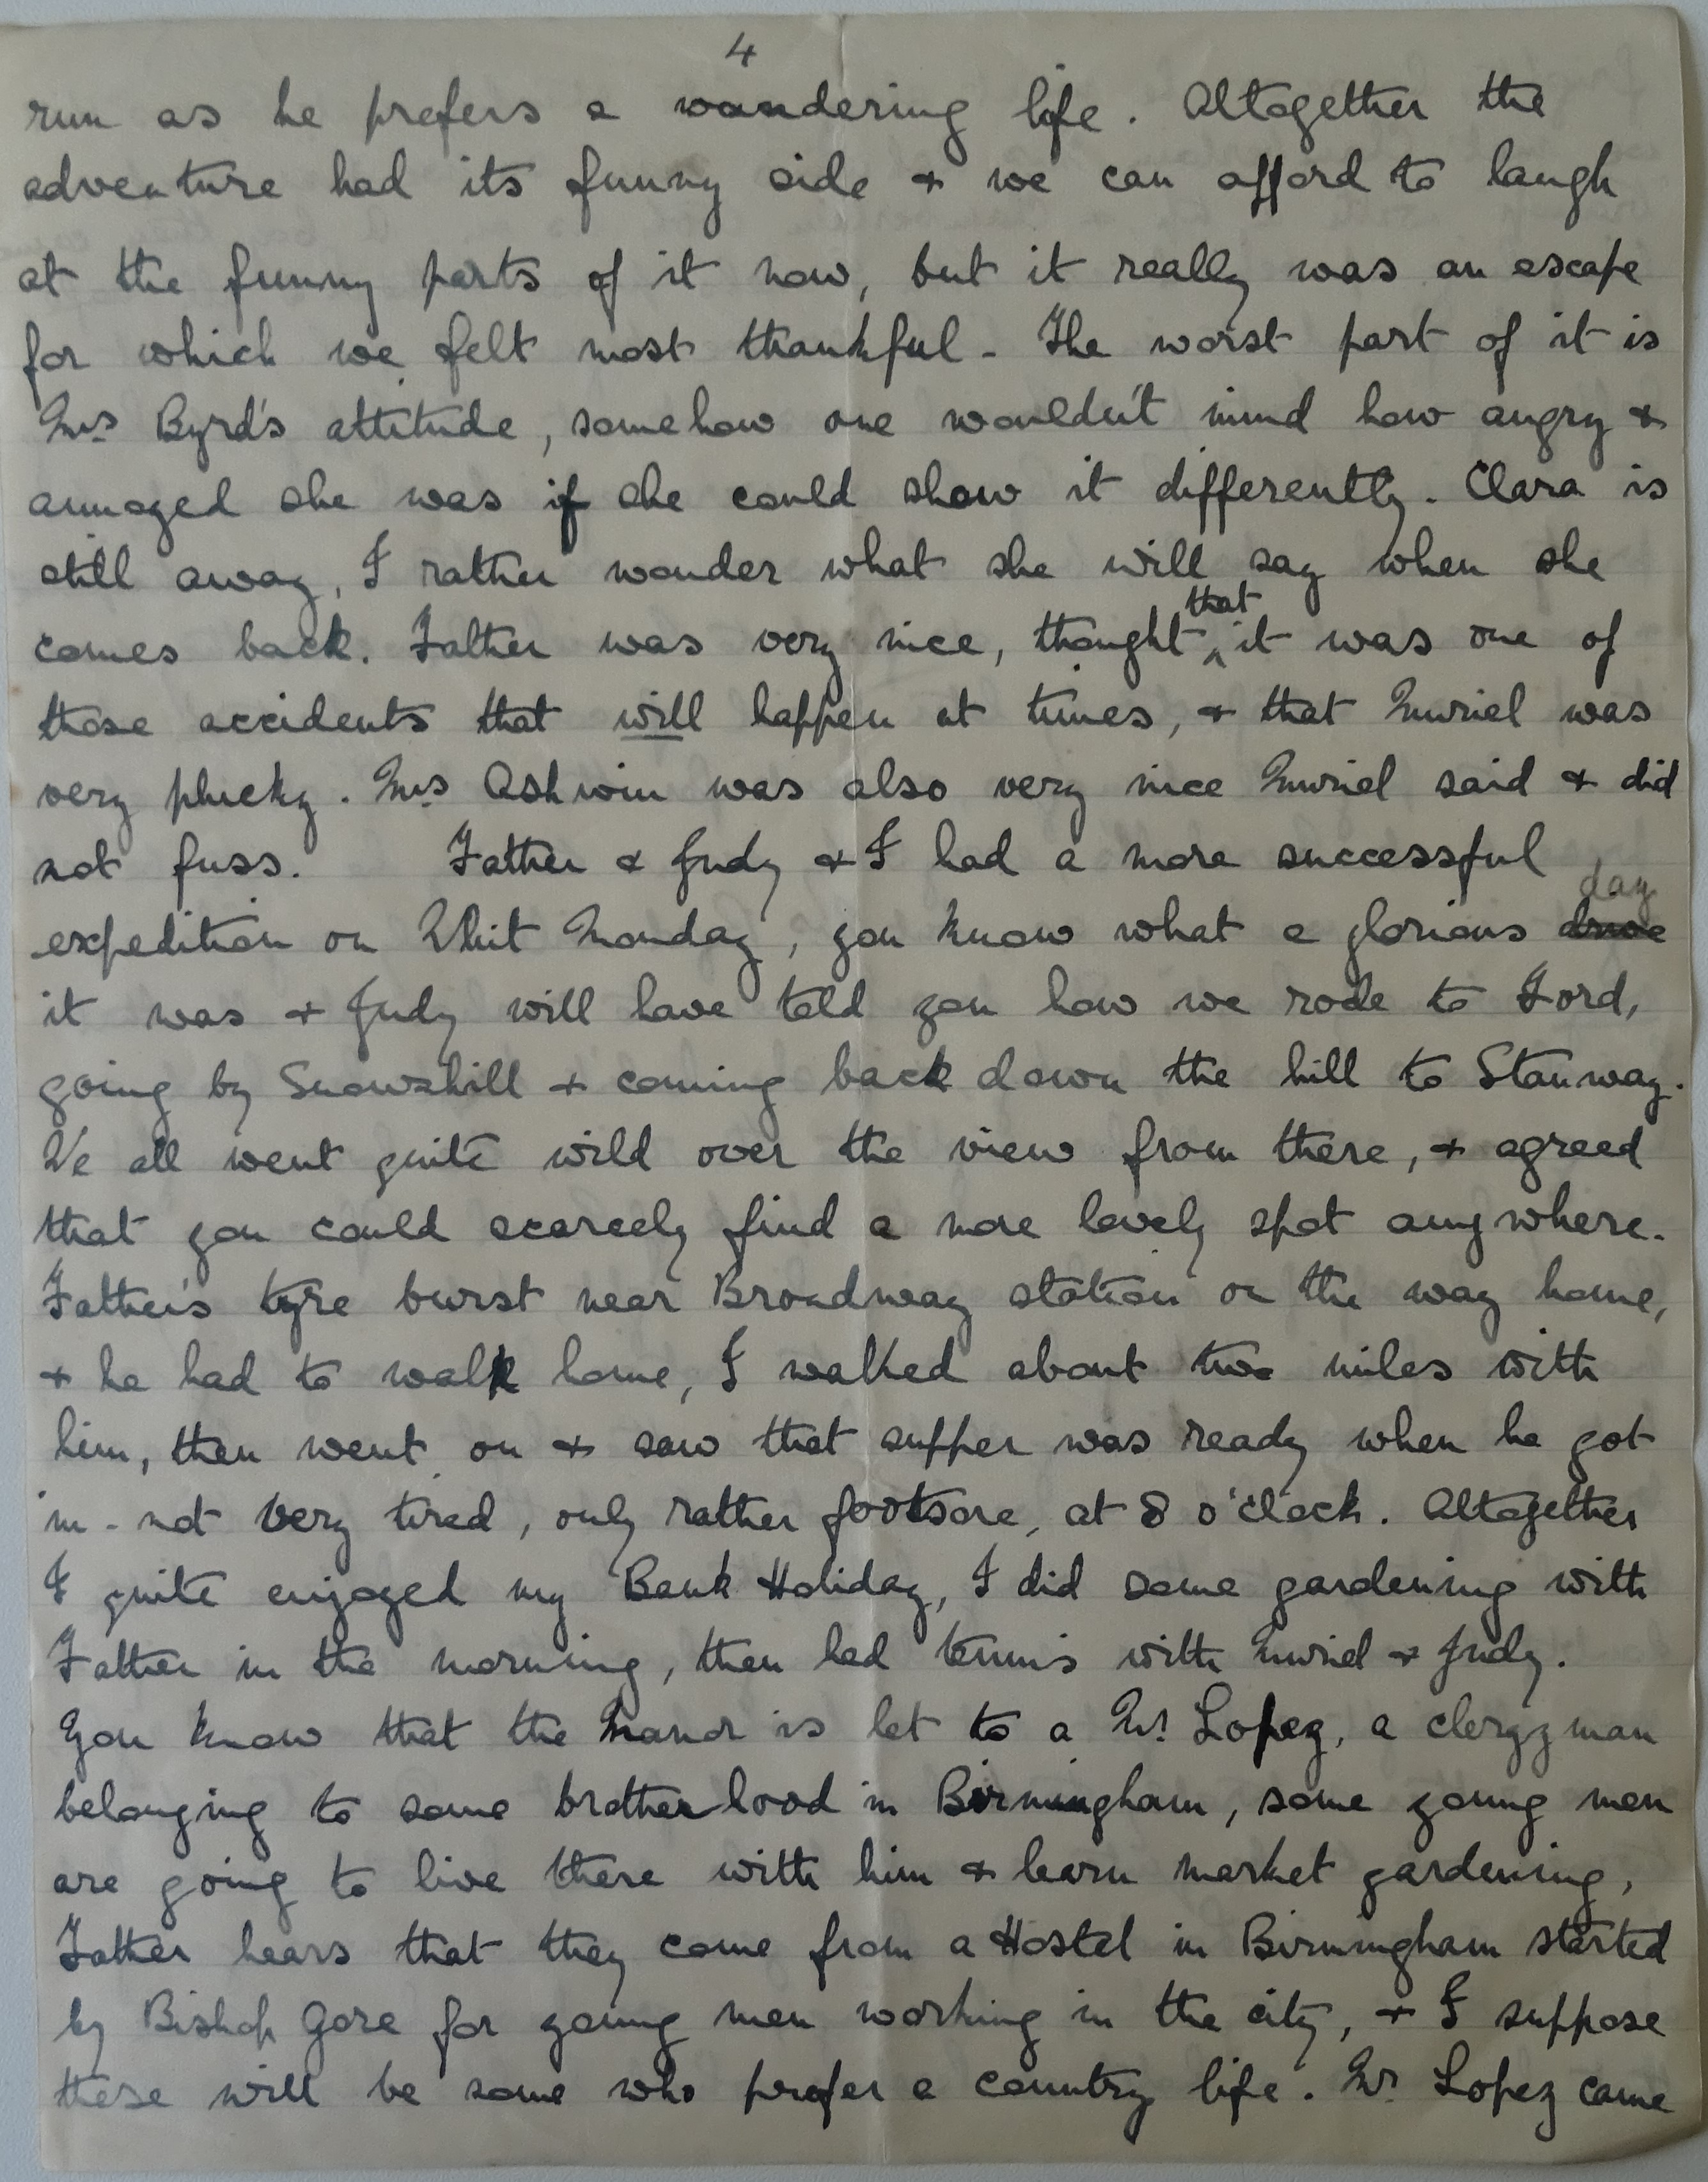 4
run as he prefers a wandering life. Altogether the
adventure had its funny side & we can afford to laugh
at the funny parts of it now, but it really was an escape
for which we felt most thankful - The worst part of it is
Mrs Byrd's attitude, somehow one wouldn't mind how angry &
annoyed she was if she could show it differently. Clara is
still away, I rather wonder what she will say when she
comes back. Father was very nice, thought that it was one of
those accidents that will happen at times, & that Muriel was
very plucky. Mrs Ashwin was also very nice Muriel said & did
not fuss. Father & Judy & I had a more successful
expedition on Whit Monday, you know what a glorious drive day
it was & Judy will have told you how we rode to Ford,
going by Snowshill & coming back down the hill to Stanway.
We all went quite wild over the view from there, & agreed
that you could scarcely find a more lovely spot anywhere.
Father's tyre burst near Broadway station on the way home,
& he had to walk home, I walked about two miles with
him, then went on & saw that supper was ready when he got
in - not very tired, only rather footsore, at 8 o'clock. Altogether
I quite enjoyed my Bank Holiday, I did some gardening with
Father in the morning, then had tennis with Muriel & Judy.
You know that the Manor is let to a Mr Lopez, a clergyman
belonging to some brotherhood in Birmingham, some young men
are going to live there with him & learn market gardening,
Father hears that they come from a Hostel in Birmingham started
by Bishop Gore for young men working in the city, & I suppose
these will be some who prefer a country life. Mr Lopez came